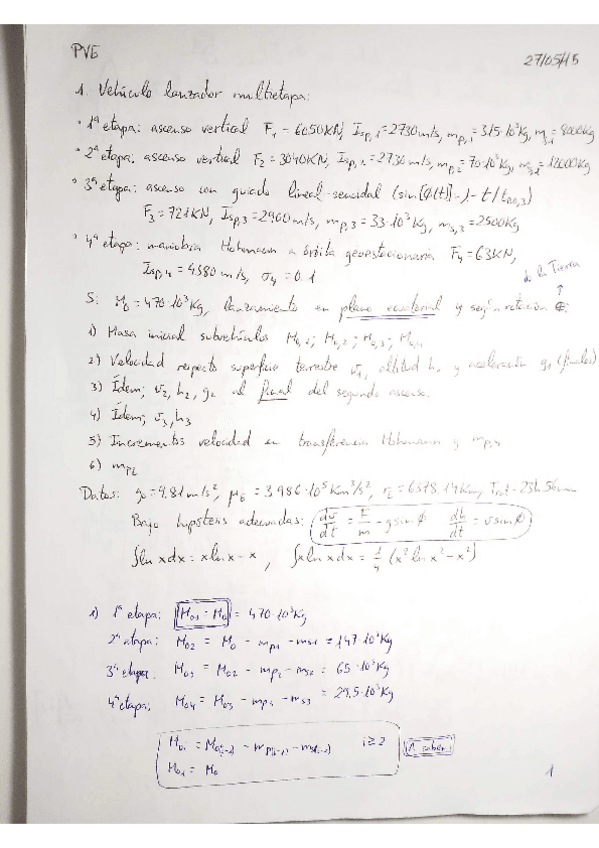 PVE
27/05/15
1. Vehículo lanzador multietapa:
· 1ª etapa: ascenso vertical F₁ = 6050 KN, Isp,1 = 2730 m/s, mp,1 = 315·10³ Kg, ms,1 = 8000 Kg
· 2ª etapa: ascenso vertical F₂ = 3040 KN, Isp,2 = 2730 m/s, mp,2 = 70·10³ Kg, ms,2 = 12000 Kg
· 3ª etapa: ascenso con guiado lineal-senoidal (sin[ϕ(t)] = 1 - t/tbo,3)
F₃ = 721 KN, Isp,3 = 2900 m/s, mp,3 = 33·10³ Kg, ms,3 = 2500 Kg
· 4ª etapa: maniobra Hohmann a órbita geoestacionaria F₄ = 63 KN,
Isp,4 = 4380 m/s, σ₄ = 0.1
de la Tierra
S: M₀ = 470·10³ Kg, lanzamiento en plano ecuatorial y según rotación ⊕:
1) Masa inicial subvehículos M0,1; M0,2; M0,3; M0,4
2) Velocidad respecto superficie terrestre v₁, altitud h₁ y aceleración g₁ (finales)
3) Ídem; v₂, h₂, g₂ al final del segundo ascenso.
4) Ídem; v₃, h₃
5) Incrementos velocidad en transferencia Hohmann y mp,4
6) mPL
Datos: g₀ = 9.81 m/s², = 3.986·10⁵ Km³/s², = 6378.14 Km, = 23h 56min
Bajo hipótesis adecuadas: dv/dt = F/m - g sin ϕ dh/dt = v sin ϕ
∫ln x dx = x ln x - x, ∫x ln x dx = 1/4 (x² ln x² - x²)
1) 1ª etapa: M01 = M0 = 470·10³ Kg
2ª etapa: M02 = M0 - mp1 - ms1 = 147·10³ Kg
3ª etapa: M03 = M02 - mp2 - ms2 = 65·10³ Kg
4ª etapa: M04 = M03 - mp3 - ms3 = 29,5·10³ Kg
M0i = M0(i-1) - mp(i-1) - ms(i-1) i ≥ 2 A saber
M01 = M0
1